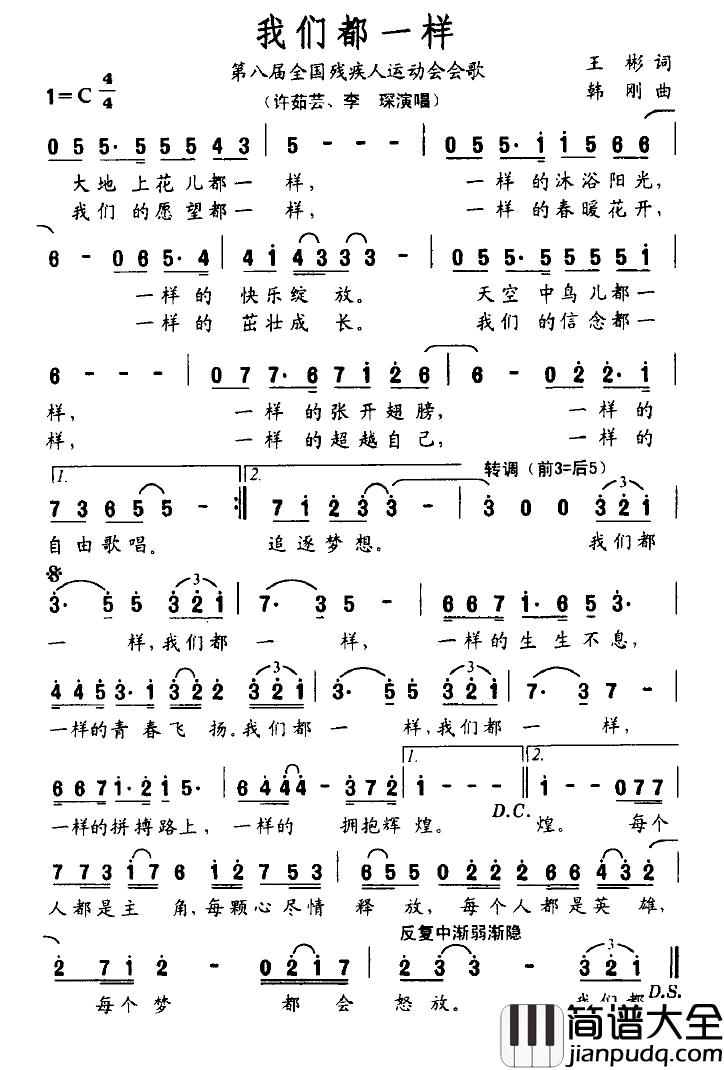 我们都一样
第八届全国残疾人运动会会歌
王 彬 词
1=C 4/4
（许茹芸、李 琛演唱）
韩 刚 曲
0 5 5· 5 5 5 5 4 3 | 5 - - - | 0 5 5· i i 5 6 6 |
大地 上花儿都一 样， 一样 的沐浴阳光，
我们 的愿望都一 样， 一样 的春暖花开，
6 - 0 6 5· 4 | 4 i 4 3 3 3 3 - | 0 5 5· 5 5 5 5 5 i |
一样的 快乐绽 放。 天空 中鸟儿都一
一样的 茁壮成 长。 我们 的信念都一
6 - - - | 0 7 7· 6 7 i 2 6 | 6 - 0 2 2· i |
样， 一样 的张开翅膀， 一样的
样， 一样 的超越自己， 一样的
1. 2. 转调（前3=后5）
7 3 6 5 5 5 - :‖ 7 i 2 3 3 - | 3 0 0 3 2 i |
自由歌唱。 追逐梦想。 我们都
3· 5 5 3 2 i | 7· 3 5 - | 6 6 7 i· 6 5 3· |
一 样，我们都 一 样， 一样的生生不息，
4 4 5 3· i 3 2 2 3 2 i | 3· 5 5 3 2 i | 7· 3 7 - |
一样的青春飞 扬。我们都 一 样，我们都 一 样，
1. 2.
6 6 7 i· 2 i 5· | 6 4 4 4 - 3 7 2 | i - - - ‖ i - 0 7 7 |
一样的拼搏路上， 一样的 拥抱辉 煌。 D.C. 煌。 每个
7 7 3 2 i 7 6 | i 2 2 7 5 3 | 6 5 5 0 2 2 | 2 2 6 6 4 3 2 |
人都是主 角，每颗心尽情 释 放， 每个人都是英雄，
反复中渐弱渐隐
2 7 i 2 - | 0 2 i 7 | 2 3 3 - | 3 2 i
每个梦 都 会 怒放。 我们都
D.S.
简谱大全
jianpudq.com